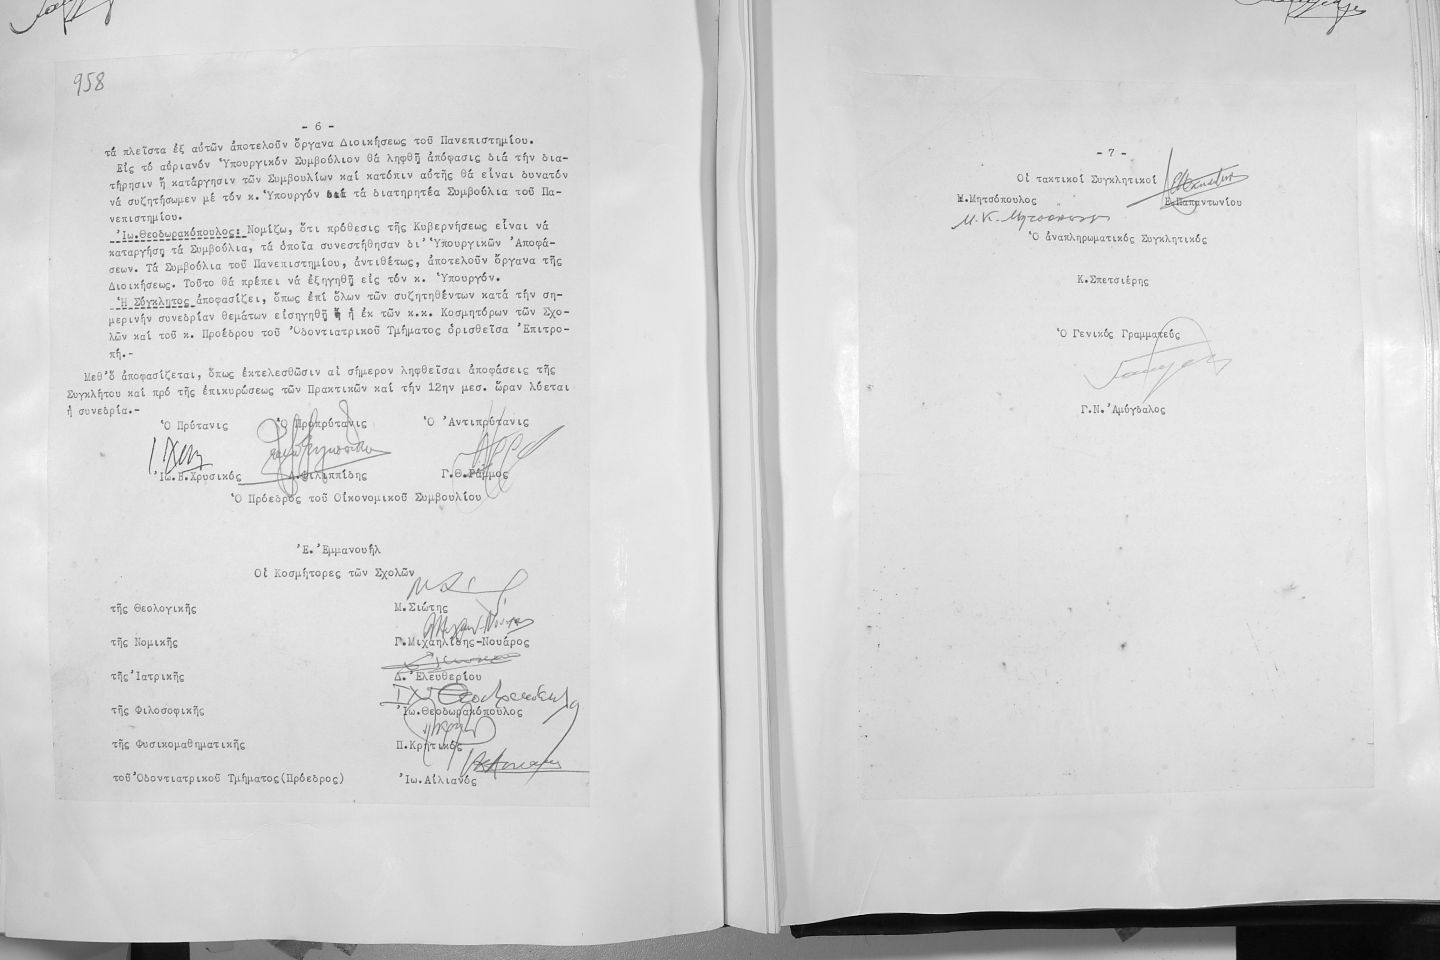 958
- 6 -
τά πλεῖστα ἐξ αὐτῶν ἀποτελοῦν ὄργανα Διοικήσεως τοῦ Πανεπιστημίου.
Εἰς τό αὐριανόν Ὑπουργικόν Συμβούλιον θά ληφθῆ ἀπόφασις διά τήν δια-
τήρησιν ἤ κατάργησιν τῶν Συμβουλίων καί κατόπιν αὐτῆς θά εἶναι δυνατόν
νά συζητήσωμεν μέ τόν κ. Ὑπουργόν διά τά διατηρητέα Συμβούλια τοῦ Πα-
νεπιστημίου.
Ἰω.Θεοδωρακόπουλος: Νομίζω, ὅτι πρόθεσις τῆς Κυβερνήσεως εἶναι νά
καταργήση τά Συμβούλια, τά ὁποῖα συνεστήθησαν δι' Ὑπουργικῶν Ἀποφά-
σεων. Τά Συμβούλια τοῦ Πανεπιστημίου, ἀντιθέτως, ἀποτελοῦν ὄργανα τῆς
Διοικήσεως. Τοῦτο θά πρέπει νά ἐξηγηθῆ εἰς τόν κ. Ὑπουργόν.
Ἡ Σύγκλητος ἀποφασίζει, ὅπως ἐπί ὅλων τῶν συζητηθέντων κατά τήν ση-
μερινήν συνεδρίαν θεμάτων εἰσηγηθῆ ἡ ἐκ τῶν κ.κ. Κοσμητόρων τῶν Σχο-
λῶν καί τοῦ κ. Προέδρου τοῦ Ὀδοντιατρικοῦ Τμήματος ὁρισθεῖσα Ἐπιτρο-
πή.-
Μεθ'ὅ ἀποφασίζεται, ὅπως ἐκτελεσθῶσιν αἱ σήμερον ληφθεῖσαι ἀποφάσεις τῆς
Συγκλήτου καί πρό τῆς ἐπικυρώσεως τῶν Πρακτικῶν καί τήν 12ην μεσ. ὥραν λύεται
ἡ συνεδρία.-
Ὁ Πρύτανις Ὁ Προπρύτανις Ὁ Ἀντιπρύτανις
Ἰω.Β.Χρυσικός Λ.Φιλιππίδης Γ.Θ.Ράμμος
Ὁ Πρόεδρος τοῦ Οἰκονομικοῦ Συμβουλίου
Ἐ. Ἐμμανουήλ
Οἱ Κοσμήτορες τῶν Σχολῶν
τῆς Θεολογικῆς Μ.Σιώτης
τῆς Νομικῆς Γ.Μιχαηλίδης-Νουάρος
τῆς Ἰατρικῆς Δ. Ἐλευθερίου
τῆς Φιλοσοφικῆς Ἰω.Θεοδωρακόπουλος
τῆς Φυσικομαθηματικῆς Π.Κρητικός
τοῦ Ὀδοντιατρικοῦ Τμήματος(Πρόεδρος) Ἰω.Αἰλιανός
- 7 -
Οἱ τακτικοί Συγκλητικοί
Μ.Μητσόπουλος Ε.Παπαντωνίου
Μ. Κ. Μητσόπουλος
Ὁ ἀναπληρωματικός Συγκλητικός
Κ.Σπετσιέρης
Ὁ Γενικός Γραμματεύς
Γ.Ν.Ἀμύγδαλος